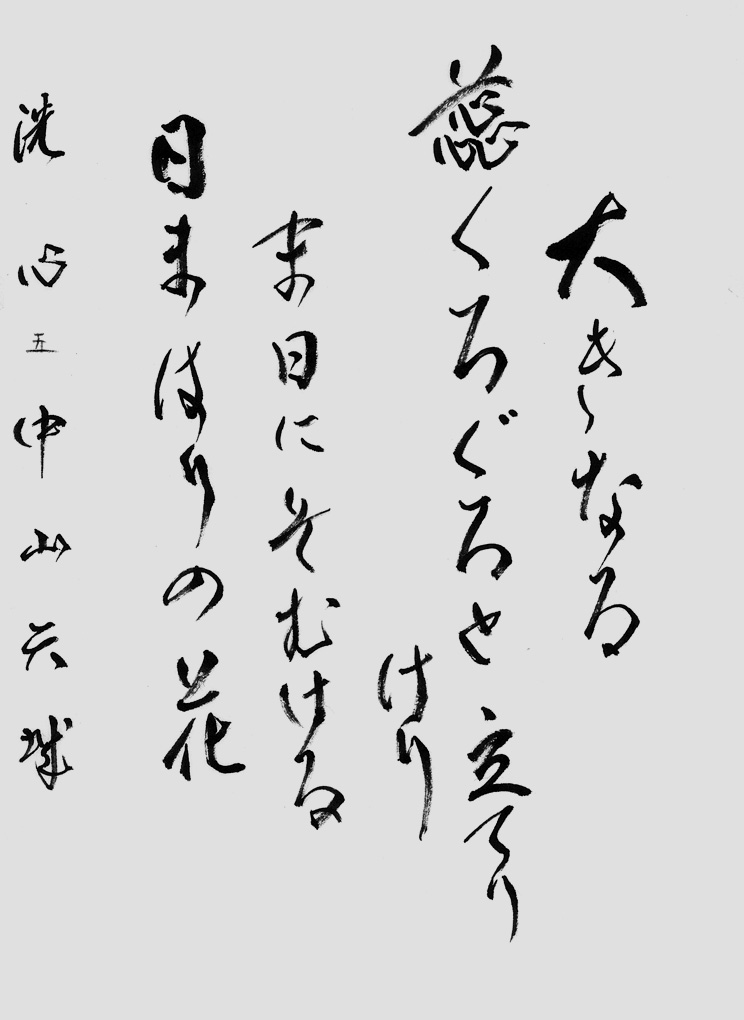 大きなる
蕊くろぐろと立てり
けり
ま日にそむける
日まはりの花
洗心五中山